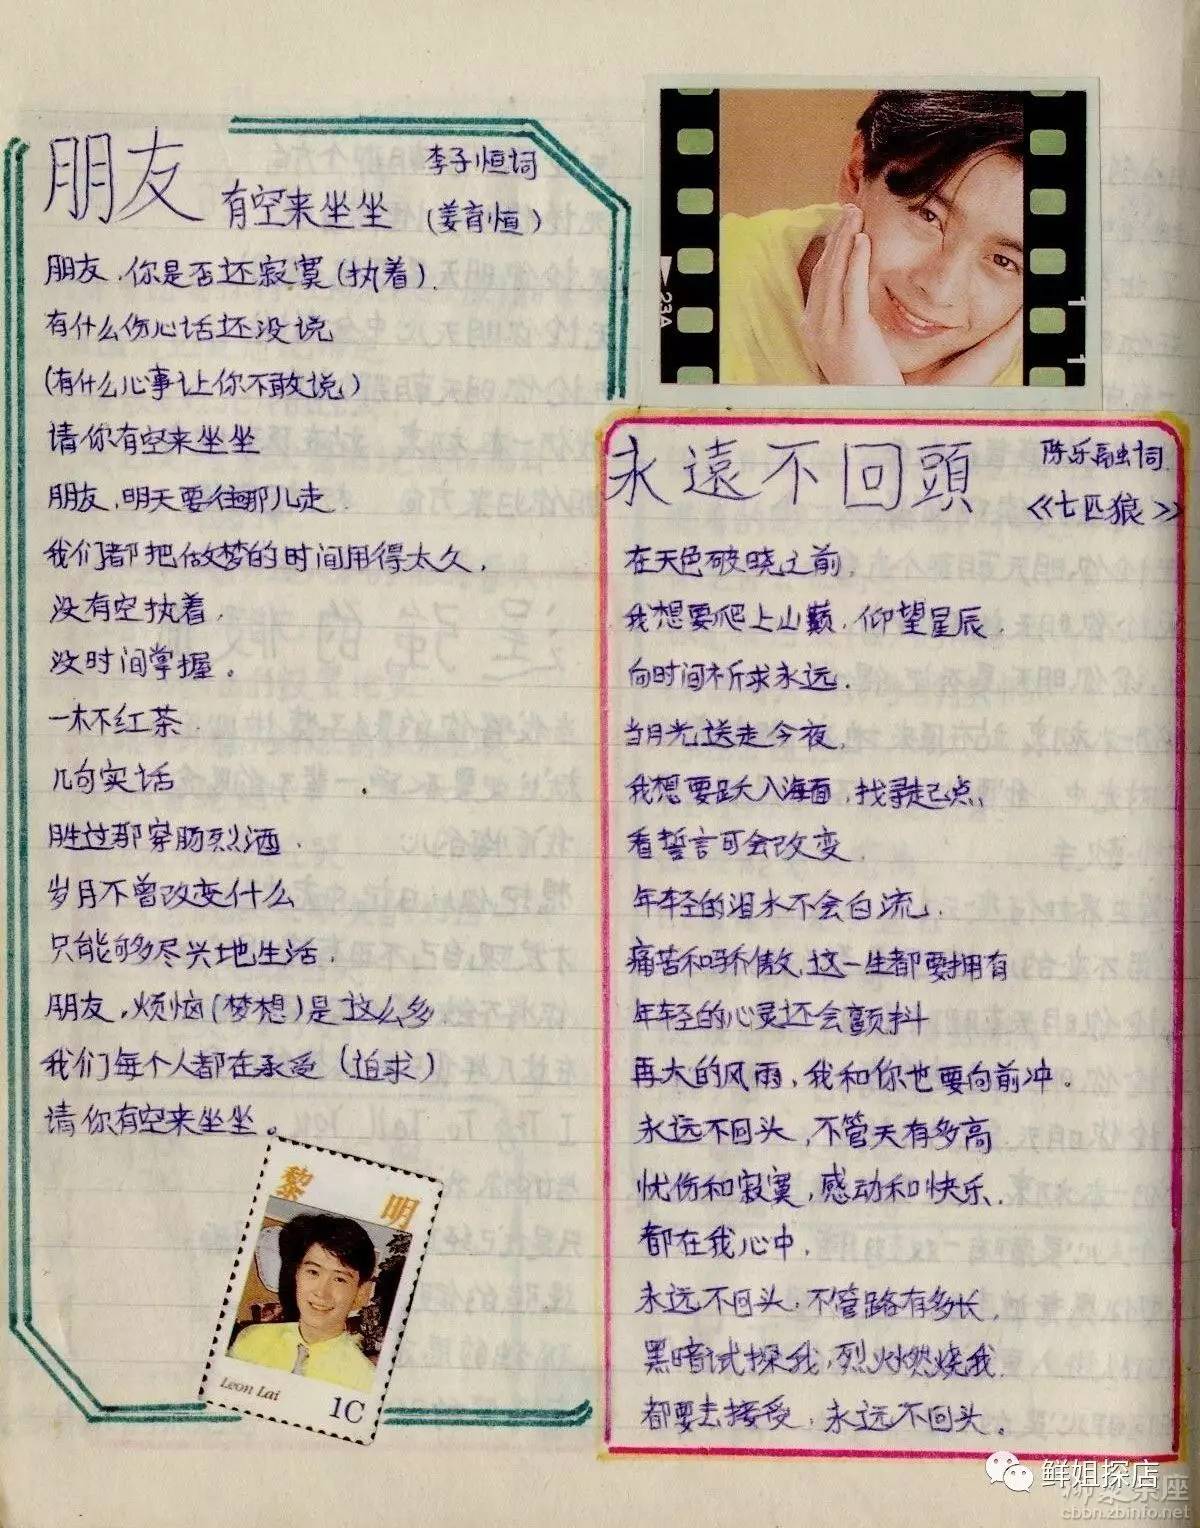 朋友
有空来坐坐
李子恒词
(姜育恒)
朋友.你是否还寂寞(执着).
有什么伤心话还没说
(有什么心事让你不敢说)
请你有空来坐坐
朋友,明天要往哪儿走.
我们都把做梦的时间用得太久,
没有空执着,
没时间掌握。
一杯红茶.
几句实话
胜过那穿肠烈酒.
岁月不曾改变什么
只能够尽兴地生活.
朋友,烦恼(梦想)是这么多.
我们每个人都在承受(追求)
请你有空来坐坐。
黎明
Leon Lai
1C
23A
永遠不回頭
陈乐融词.
《七匹狼》
在天色破晓之前,
我想要爬上山巅.仰望星辰.
向时间祈求永远.
当月光送走今夜,
我想要跃入海面,找寻起点,
看誓言可会改变.
年轻的泪水不会白流,
痛苦和骄傲,这一生都要拥有
年轻的心灵还会颤抖
再大的风雨,我和你也要向前冲。
永远不回头,不管天有多高
忧伤和寂寞,感动和快乐.
都在我心中,
永远不回头.不管路有多长,
黑暗试探我,烈火燃烧我.
都要去接受,永远不回头。
鲜姐探店
cbbn.zbinfo.net